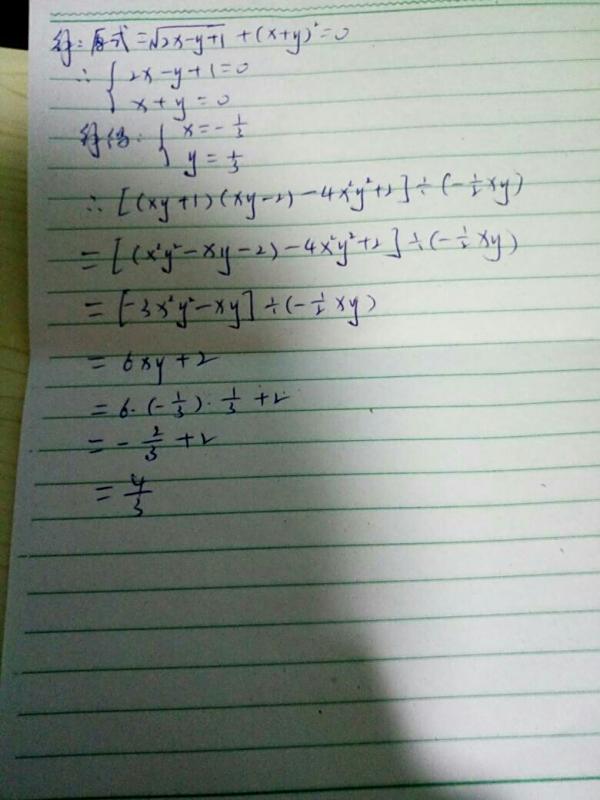 解：原式=√2x-y+1 +(x+y)²=0
∴ { 2x-y+1=0
x+y=0
解得：{ x=-1/3
y=1/3
∴ [(xy+1)(xy-2)-4x²y²+2]÷(-1/2xy)
=[(x²y²-xy-2)-4x²y²+2]÷(-1/2xy)
=[-3x²y²-xy]÷(-1/2xy)
=6xy+2
=6·(-1/3)·1/3+2
=-2/3+2
=4/3